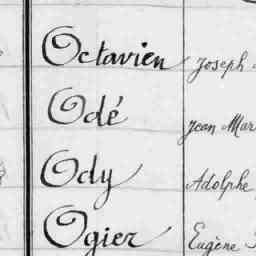 Octavien Joseph
Odé Jean Mar
Ody Adolphe
Ogier Eugène